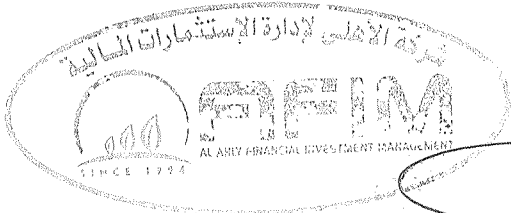 شركة الأهلى لإدارة الإستثمارات المالية
AFIM
AL AHLY FINANCIAL INVESTMENT MANAGEMENT
SINCE 1994